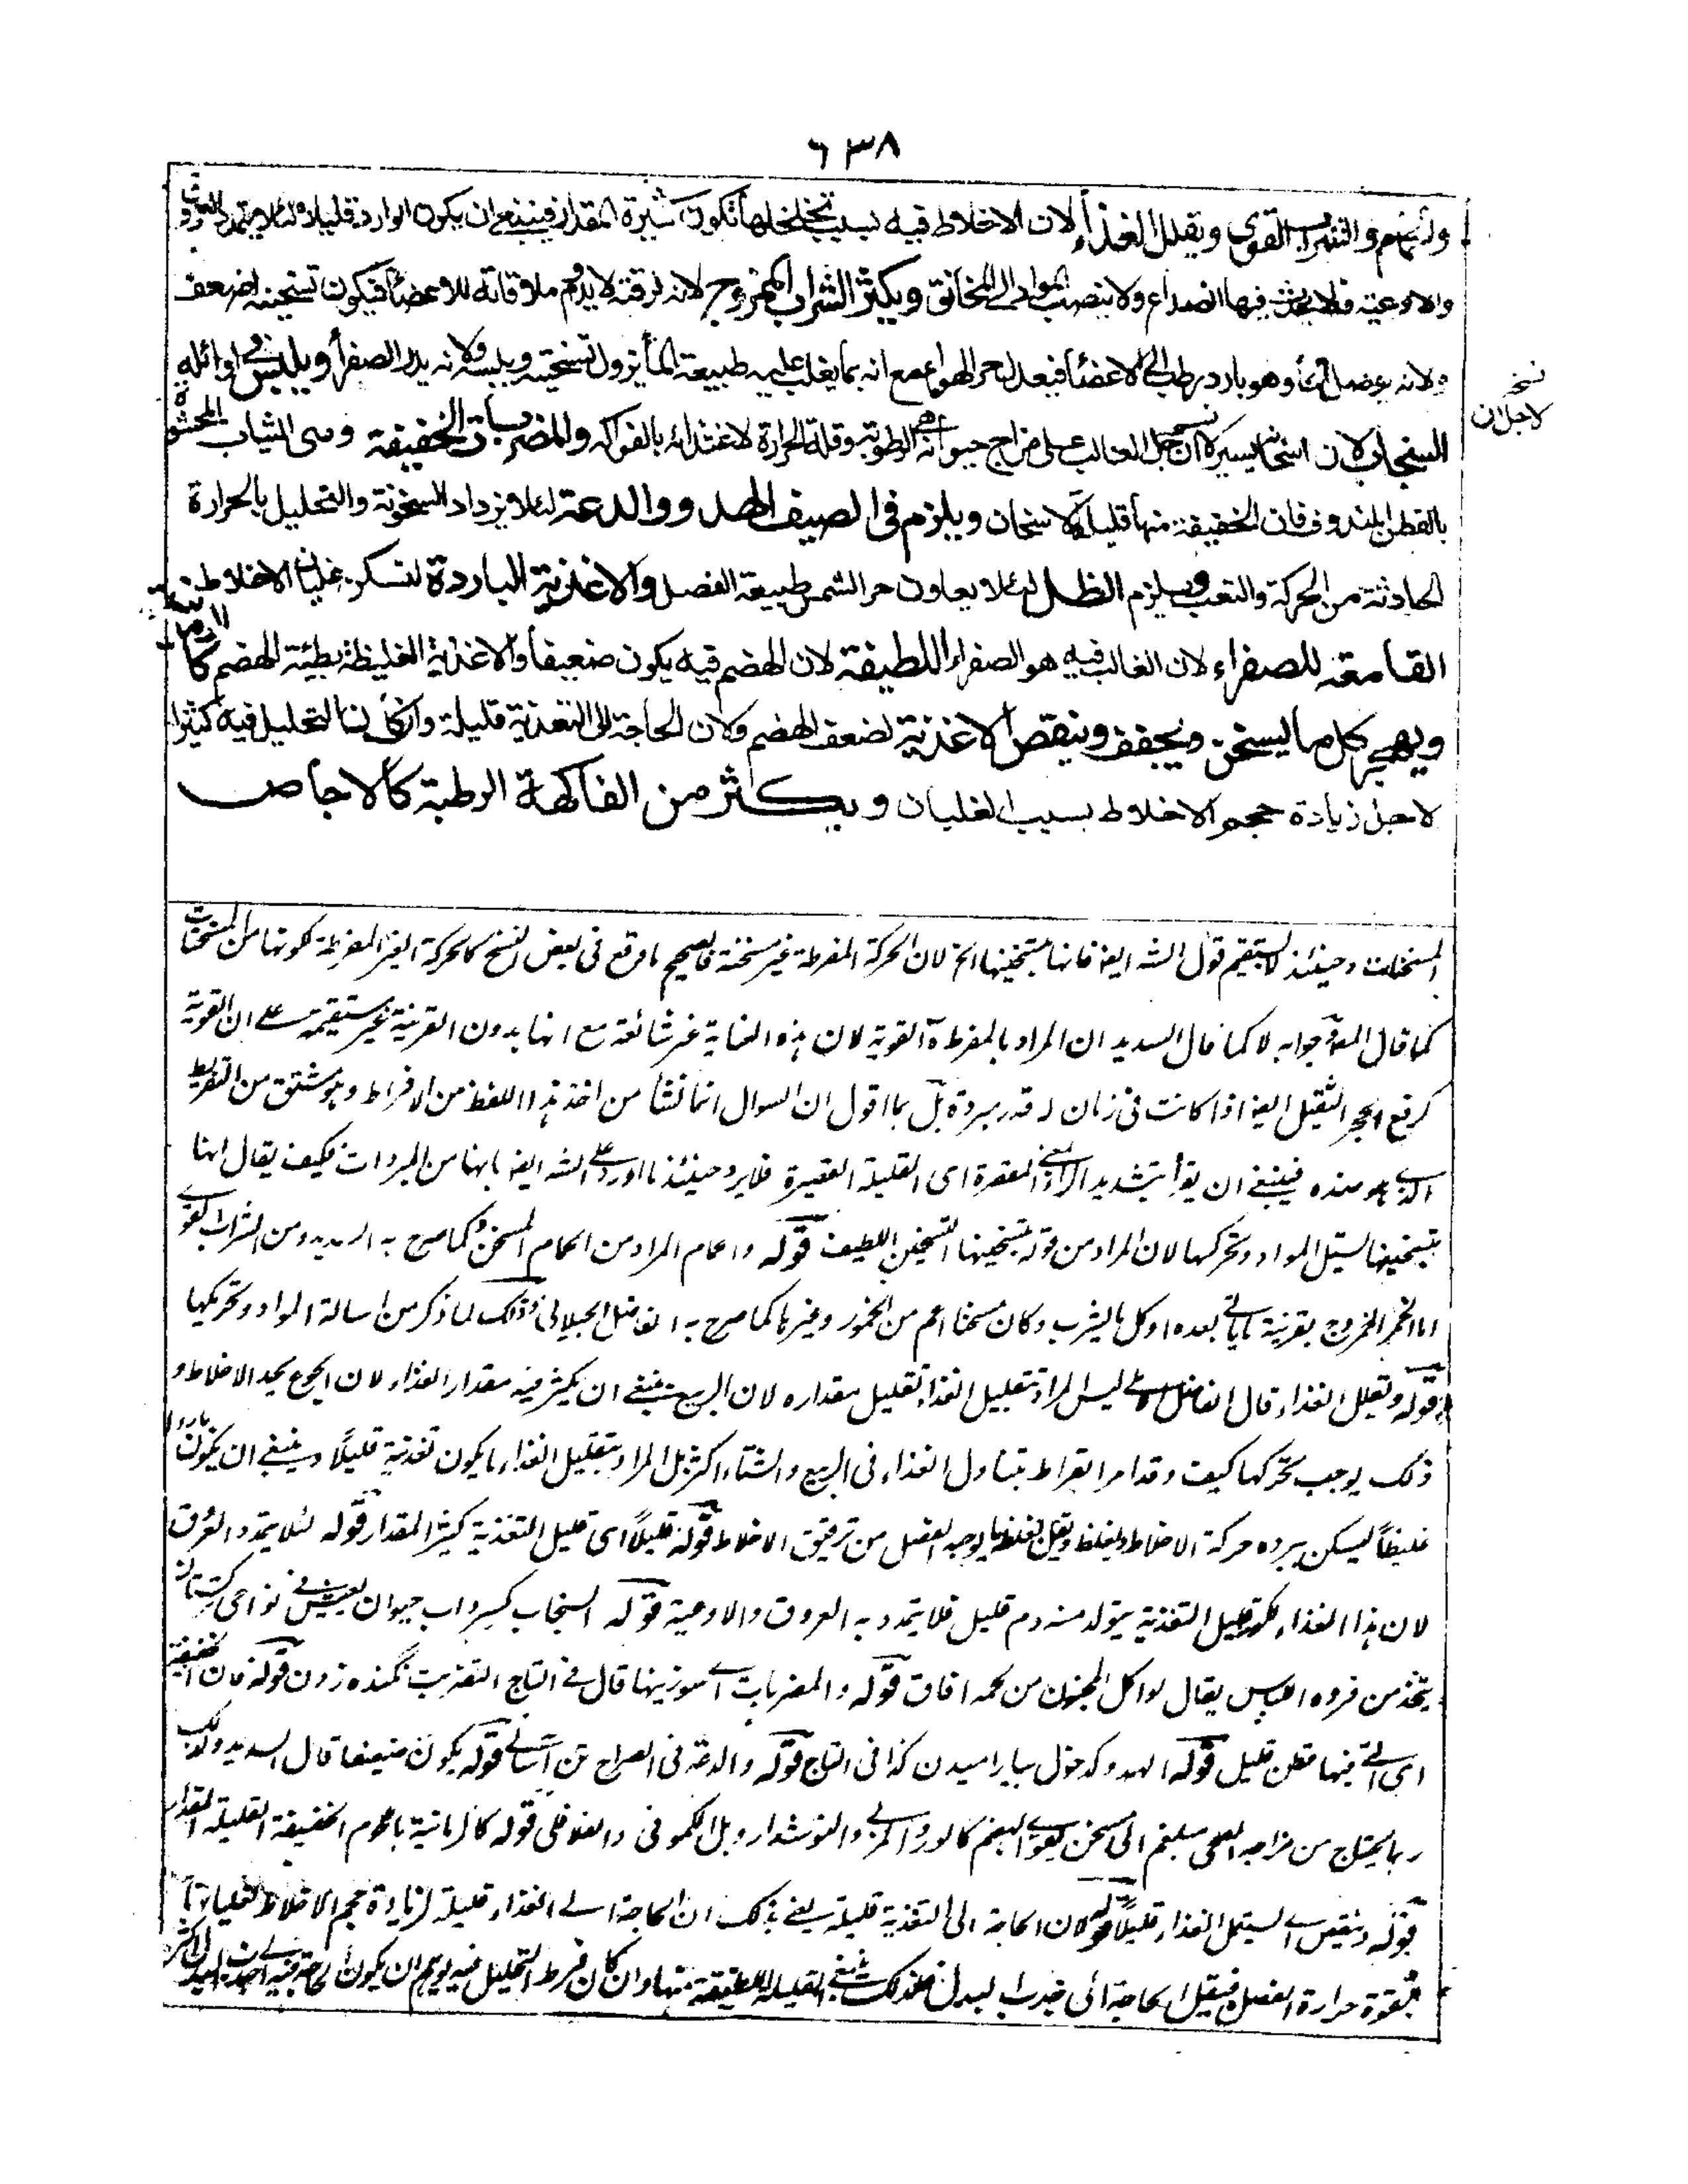 ٦٣٨
والشراب القوي ويقلل الغذاء لان الاخلاط فيه بسبب تخلخلها تكون كثيرة المقدار فينبغي ان يكون الوارد قليلا لئلا يتمدد العروق
والاوعية فلا يحدث فيها انصداع ولا ينصب المواد الى المخانق ويكثر الشراب الممزوج لانه لرقته لا يدوم ملاقاته للاعضاء فيكون تسخينه اضعف
ولانه يوصل الماء وهو بارد رطب الى الاعضاء فيعدل حر الهواء مع انه بما يغلب عليه طبيعة الماء يزول تسخينه ويبسه ولانه يدر الصفراء ويلبس في اوائله
نسخه
لاجل ان
السنجاب لان اسخانه يسير لان الغالب على مزاج حيوانه الرطوبة وقلة الحرارة لاغتذائه بالفواكه والمضربات الخفيفة وهى الثياب المحشوة
بالقطن المندوف فان الخفيفة منها قليلة الاسخان ويلزم فى الصيف الهدو والدعة لئلا يزداد السخونة والتحليل بالحرارة
الحادثة من الحركة والتعب ويلزم الظل لئلا يعاون حر الشمس طبيعة الفصل والاغذية الباردة لتسكن غليان الاخلاط
القامعة للصفراء لان الغالب فيه هو الصفراء اللطيفة لان الهضم فيه يكون ضعيفا والاغذية الغليظة بطيئة الهضم
ويهجر كل ما يسخن ويجفف وينقص الاغذية لضعف الهضم ولان الحاجة الى التغذية قليلة وان كان التحليل فيه كثيرا
لاجل زيادة حجم الاخلاط بسبب الغليان ويكثر من الفاكهة الرطبة كالاجاص
المسخنات وحينئذ لا يستقيم قول الشه ايضا فانها بتسخينها الخ لان الحركة المفرطة غير مسخنة فالصحيح ما وقع فى بعض النسخ كالحركة الغير المفرطة لكونها من المسخنات
كما قال السديد ان المراد بالمفرطة القوية لان هذه العناية غير شائعة مع انها بدون القرينة غير مستقيمة على ان القوية
كرفع الحجر الثقيل ايضا اذا كانت فى زمان له قدر مبردة بل بما اقول ان السوال انما نشأ من اخذ هذا اللفظ من الافراط وهو مشتق من التفريط
الذي هو ضده فينبغي ان يقرأ بتشديد الراء المقصرة اى القليلة القصيرة فلا يرد حينئذ ما اورد على الشه ايضا بانها من المبردات فكيف يقال انها
بتسخينها تسيل المواد وتحركها لان المراد من قوله بتسخينها التسخين اللطيف قوله والحمام المراد من الحمام المسخن كما صرح به السديد ومن الشراب القوى
اما الخمر الممزوج بقرينة ما ياتي بعده او كل ما يشرب وكان مسخنا اعم من الخمور وغيرها كما صرح به الفاضل الجيلانى وذلك لما ذكر من اسالة المواد وتحريكها
قوله ويقلل الغذاء قال الفاضل ليس المراد بتقليل الغذاء تقليل مقداره لان الربيع ينبغي ان يكثر فيه مقدار الغذاء لان الجوع يحد الاخلاط و
ذلك يوجب تحركها كيف وقد امر ابقراط بتناول الغذاء فى الربيع والشتاء اكثر بل المراد بتقليل الغذاء ما يكون تغذيته قليلا وينبغي ان يكون باردا
غليظا ليسكن ببرده حركة الاخلاط ويغلظ ما يوجبه الفصل من ترقيق الاخلاط قوله قليلا اى قليل التغذية كثير المقدار قوله لئلا يتمدد العروق
لان هذا الغذاء لكونه قليل التغذية يتولد منه دم قليل فلا يتمدد به العروق والاوعية قوله السنجاب كسرداب حيوان يعيش في نواحى تركستان
يتخذ من فروه اللباس يقال لو اكل المجنون من لحمه افاق قوله والمضربات قال في التاج التضريب نگنده زدن قوله فان الخفيفة
اى التي فيها قطن قليل قوله الهدو كدخول بيارا ميدن كذا فى التاج قوله والدعة فى الصراح تن آسانے قوله يكون ضعيفا قال السديد ولذلك
ربما يحتاج من مزاجه الى مسخن يقوى الهضم كالورد المربى والنوشدارو بل الكمونى والفلافلى قوله كالرمانية باللحوم الخفيفة القليلة المقدار
قوله وينقص اى يستعمل الغذاء قليلا قوله لان الحاجة الى التغذية قليلة يعني بذلك ان الحاجة الى الغذاء قليلة لزيادة حجم الاخلاط لغليانها
بقوة حرارة الفصل فيقل الحاجة الى جذب البدل فلذلك ينبغي القليلة اللطيفة منها وان كان فرط التحليل فيه يوهم ان يكون الحاجة فيه